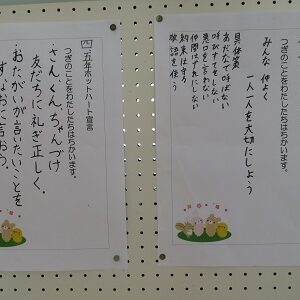 つぎのことをわたしたちはちかいます。
みんな 仲よく
一人一人を大切にしよう
具体策
あだなで呼ばない
呼びすてをしない
悪口を言わない
仲間はずれにしない
約束は守る
敬語を使う
五年ホットハート宣言
つぎのことをわたしたちはちかいます。
・さん、くん、ちゃんづけ
友だちに礼ぎ正しく。
・おたがいが言いたいことを
すなおに言おう。